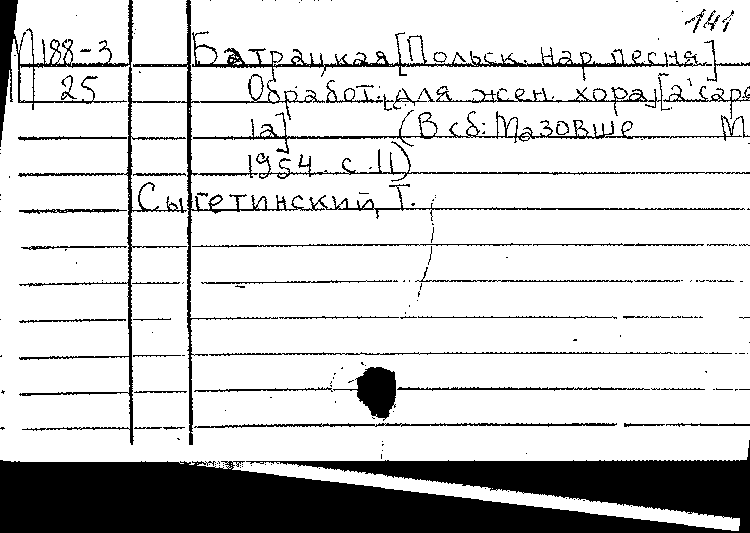 141
П188-3 Батрацкая [Польск. нар. песня]
25 Обработ. для жен. хора [a' cape
la] (В сб: Мазовше М
1954. с. 11)
Сыгетинский, Т.